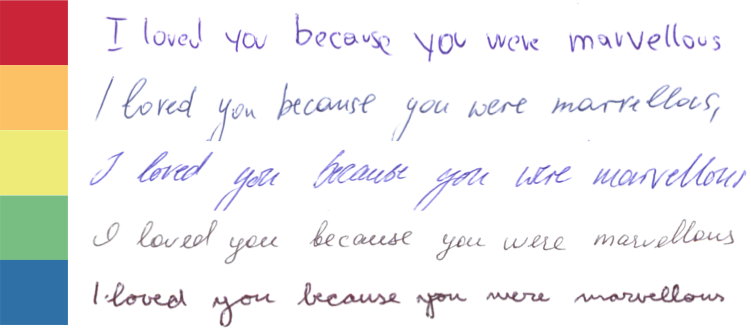 I loved you because you were marvellous
I loved you because you were marvellous,
I loved you because you were marvellous
I loved you because you were marvellous
I loved you because you were marvellous